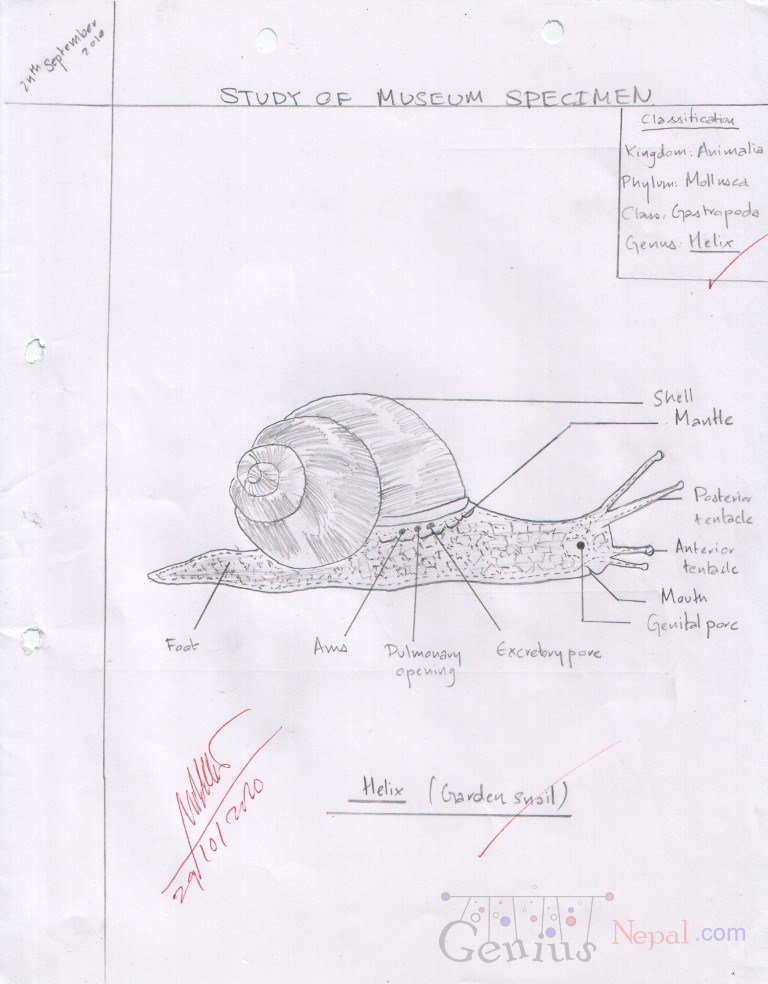 24th September
2010
STUDY OF MUSEUM SPECIMEN
Classification
Kingdom: Animalia
Phylum: Mollusca
Class: Gastropoda
Genus: Helix
Shell
Mantle
Posterior
tentacle
Anterior
tentacle
Mouth
Genital pore
Foot
Anus
Pulmonary
opening
Excretory pore
29/10/2010
Helix (Garden snail)
Genius Nepal.com